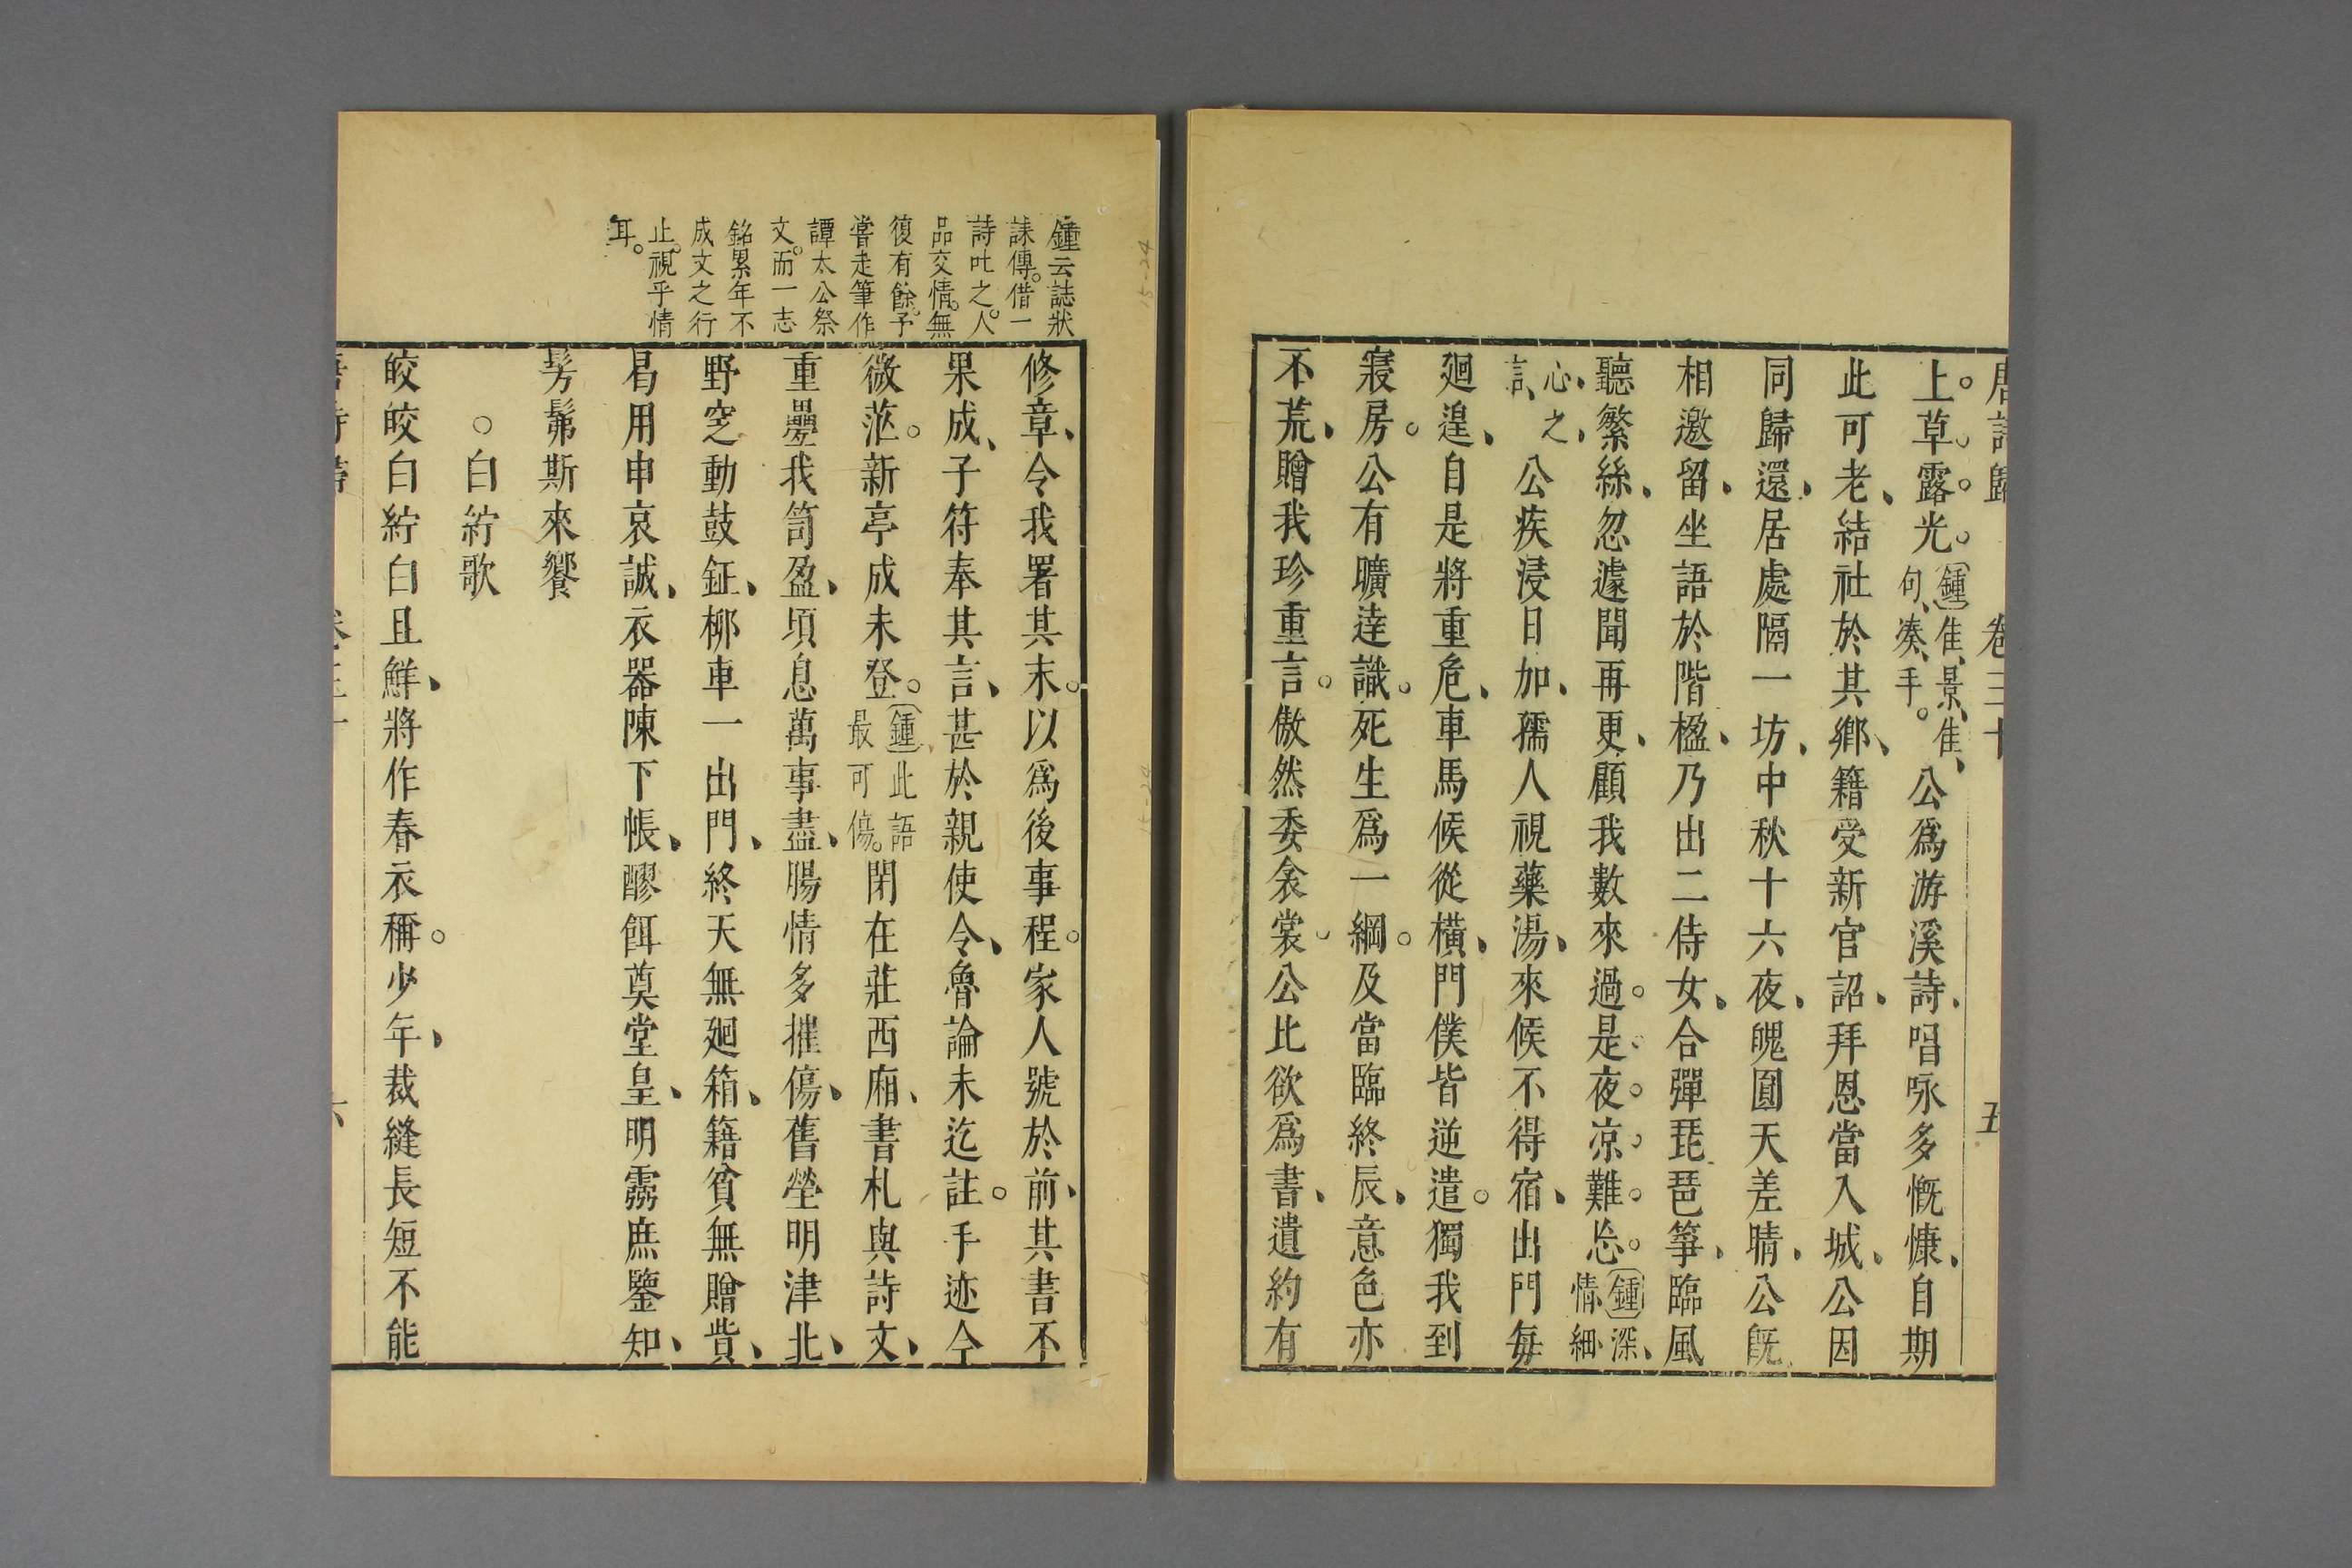 唐詩歸 卷三十 五
上草露光鍾隹景隹句湊手公爲游溪詩唱咏多慨慷自期
此可老結社於其鄉籍受新官詔拜恩當入城公因
同歸還居處隔一坊中秋十六夜魄圓天差晴公既
相邀留坐語於階楹乃出二侍女合彈琵琶箏臨風
聽繁絲忽遽聞再更顧我數來過是夜凉難忘鍾深情細
心之言公疾浸日加孺人視藥湯來候不得宿出門每
廻遑自是將重危車馬候從橫門僕皆逆遣獨我到
寢房公有曠達識死生爲一綱及當臨終辰意色亦
不荒贈我珍重言傲然委衾裳公比欲爲書遺約有
鍾云誌狀
誄傳借一
詩吐之人
品交情無
復有餘予
嘗走筆作
譚太公祭
文而一志
銘累年不
成文之行
止視乎情
耳
修章令我署其末以爲後事程家人號於前其書不
果成子符奉其言甚於親使令魯論未迄註手迹今
微茫新亭成未登鍾此語最可傷閉在莊西廂書札與詩文
重疊我笥盈頃息萬事盡腸情多摧傷舊塋明津北
野窆動鼓鉦柳車一出門終天無廻箱籍貧無贈貲
曷用申哀誠衣器陳下帳醪餌奠堂皇明靈庶鑒知
髣髴斯來饗
○白紵歌
皎皎白紵白且鮮將作春衣稱少年裁縫長短不能